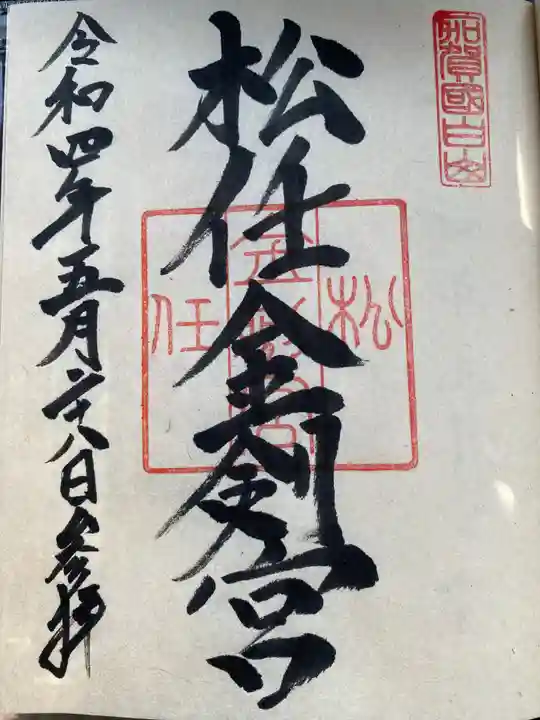 加賀國白山
松任金剣宮
松任
金剣宮
令和四年五月二十八日参拝